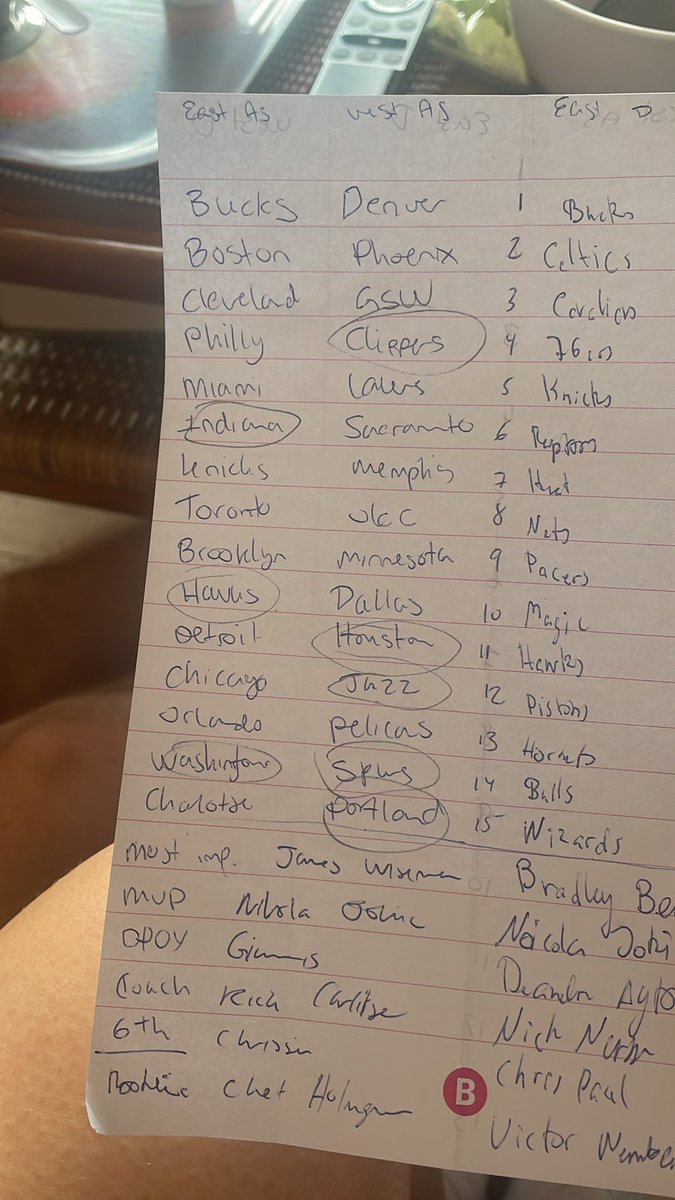 East As west As East D
Bucks Denver 1 Bucks
Boston Phoenix 2 Celtics
Cleveland GSW 3 Cavaliers
Philly Clippers 4 76ers
Miami Lakers 5 Knicks
Indiana Sacramento 6 Raptors
Knicks Memphis 7 Heat
Toronto OKC 8 Nets
Brooklyn Minnesota 9 Pacers
Hawks Dallas 10 Magic
Detroit Houston 11 Hawks
Chicago Jazz 12 Pistons
Orlando Pelicas 13 Hornets
Washington Spurs 14 Bulls
Charlotte Portland 15 Wizards
Most imp. James Wiseman Bradley Be
MVP Nikola Nicola Joki
DPOY Giannis Deandre Ayto
Coach Rick Carlisle Nick Nurse
6th Chris Paul
Rookie Chet Holmgren B Victor Wemb